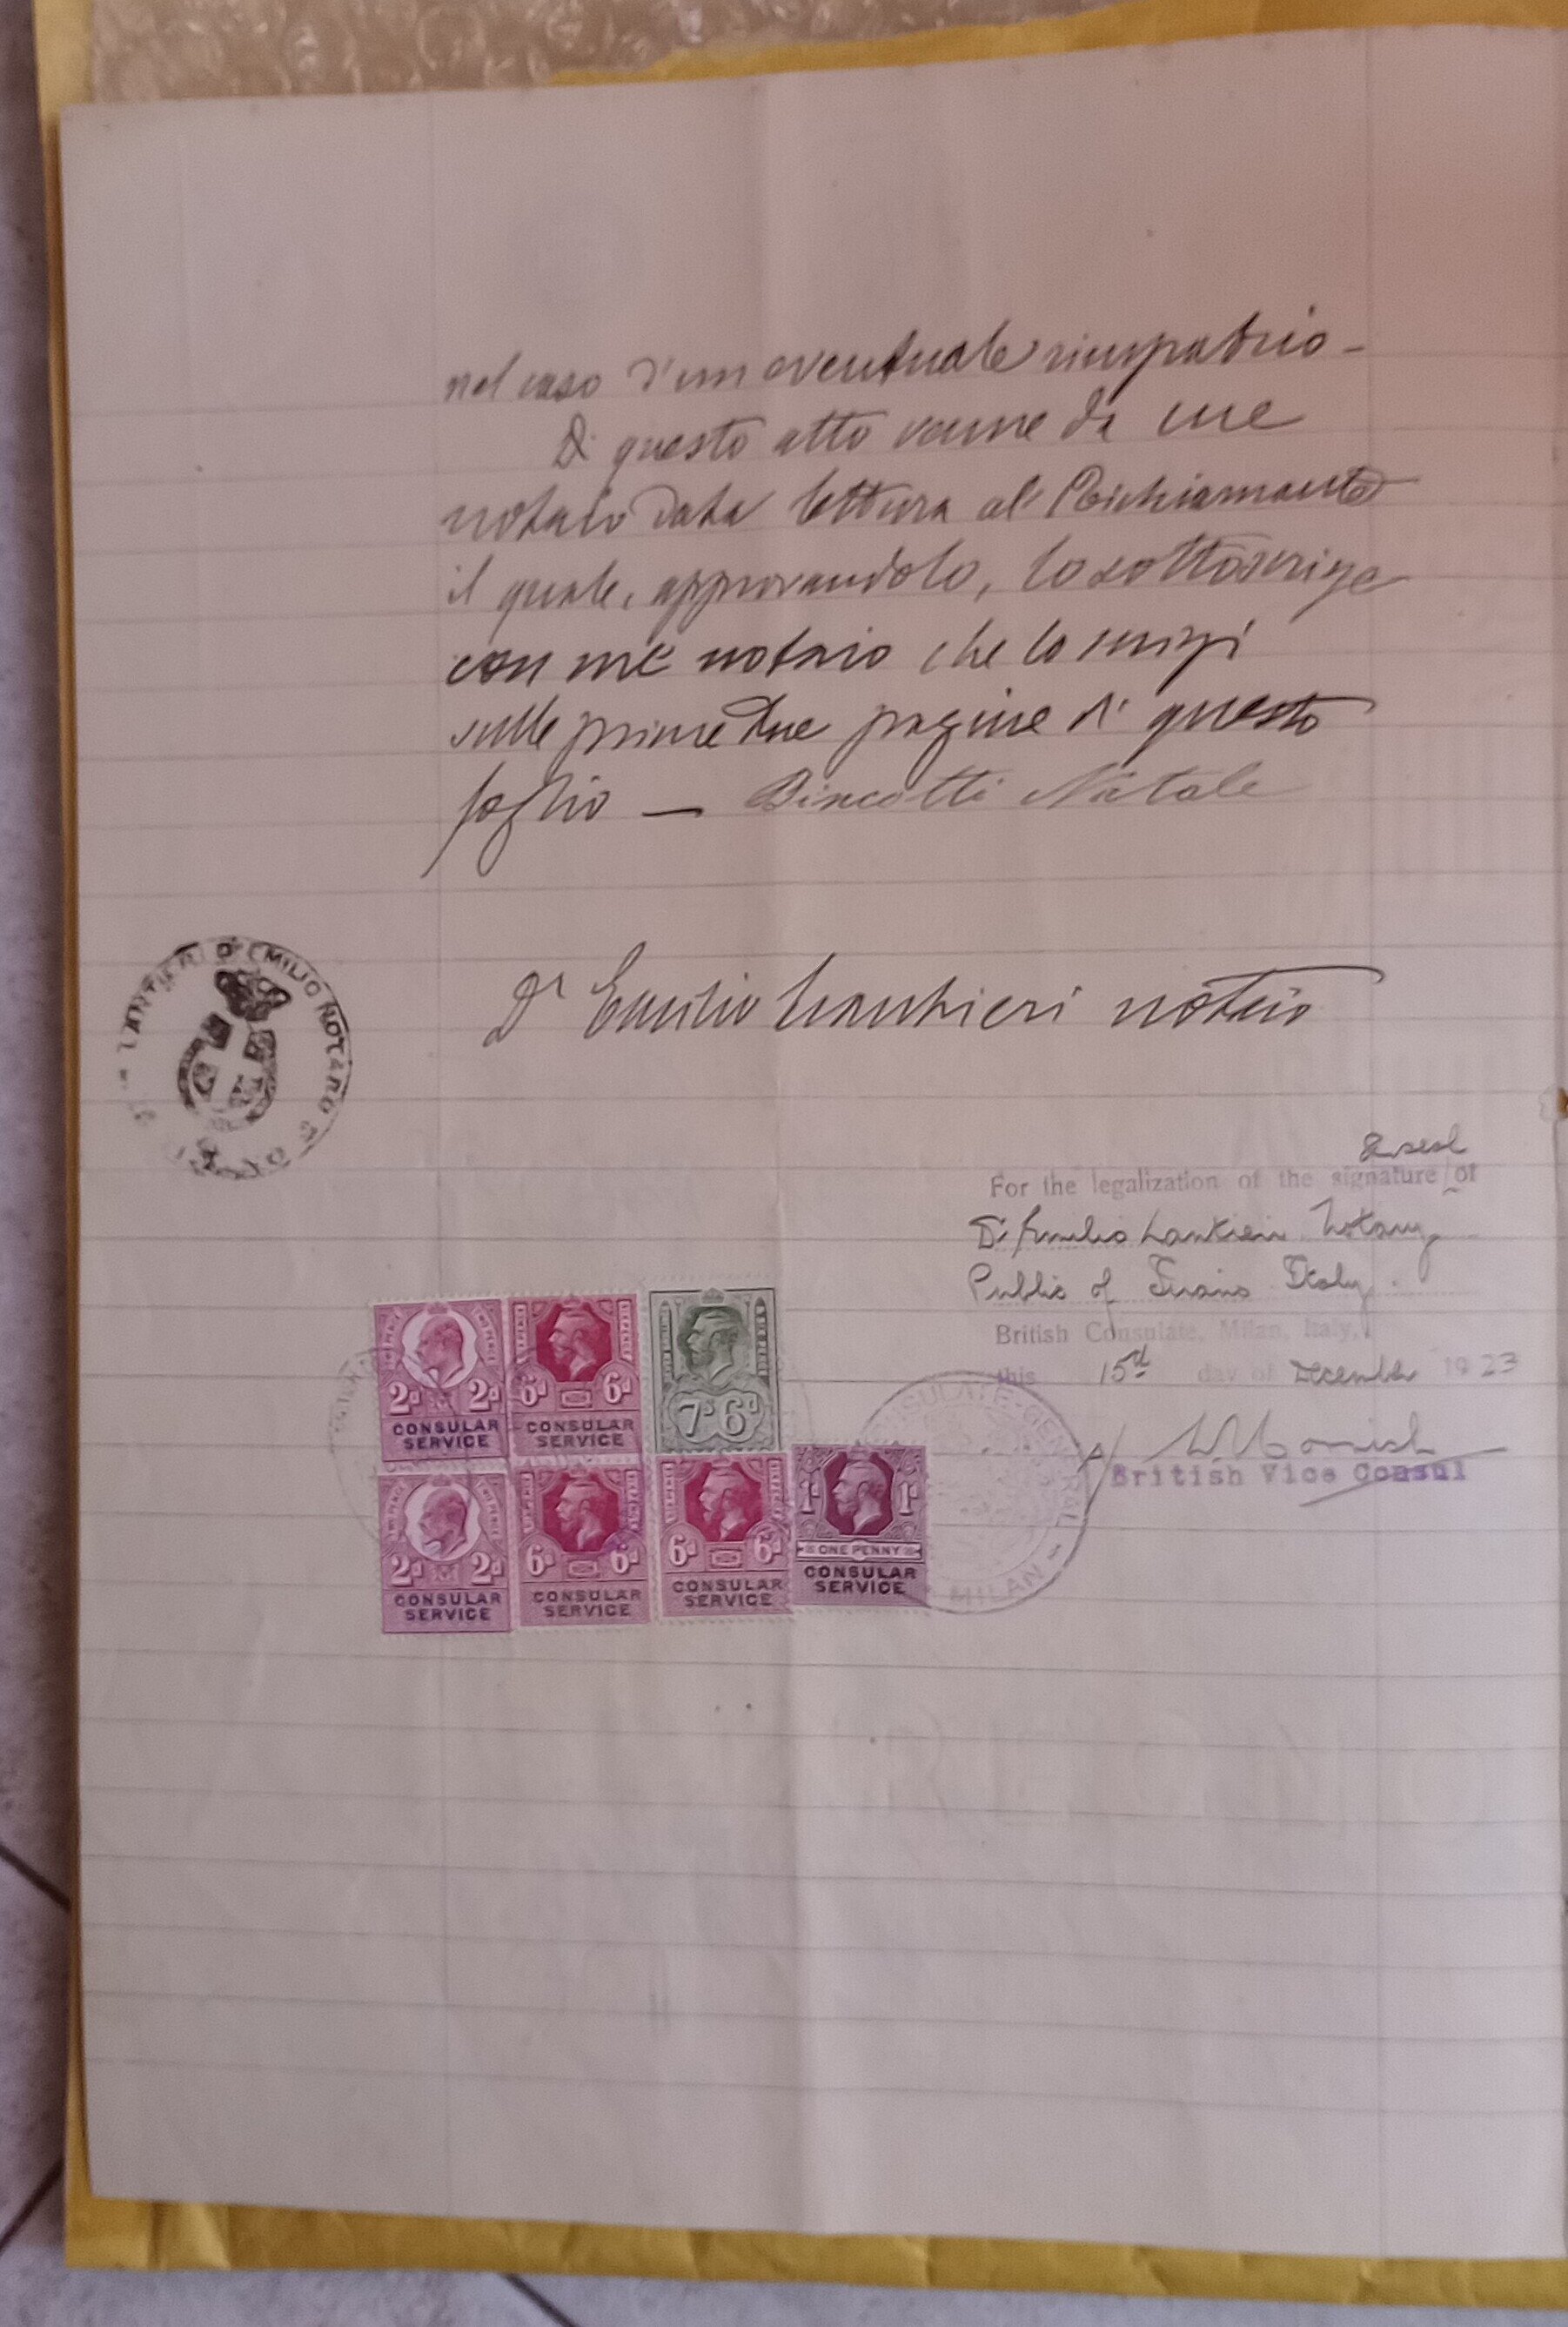 nel caso d'un eventuale rimpatrio -
Di questo atto venne da me
notaio data lettura al Richiamante
il quale, approvandolo, lo sottoscrive
con me notaio che lo scrissi
sulle prime due pagine di questo
foglio — Biscotti Natale
Dr Emilio Lantieri notaio
LANTIERI Dr EMILIO NOTARO
& seal
For the legalization of the signature / of
Dr Emilio Lantieri Notary
Public of Italy.
British Consulate, Milan, Italy,
this 15th day of December 1923
p/
British Vice Consul
CONSULATE-GENERAL - MILAN -
2d 2d
CONSULAR
SERVICE
6d 6d
CONSULAR
SERVICE
7s 6d
2d 2d
CONSULAR
SERVICE
6d 6d
CONSULAR
SERVICE
6d 6d
CONSULAR
SERVICE
1d 1d
ONE PENNY
CONSULAR
SERVICE